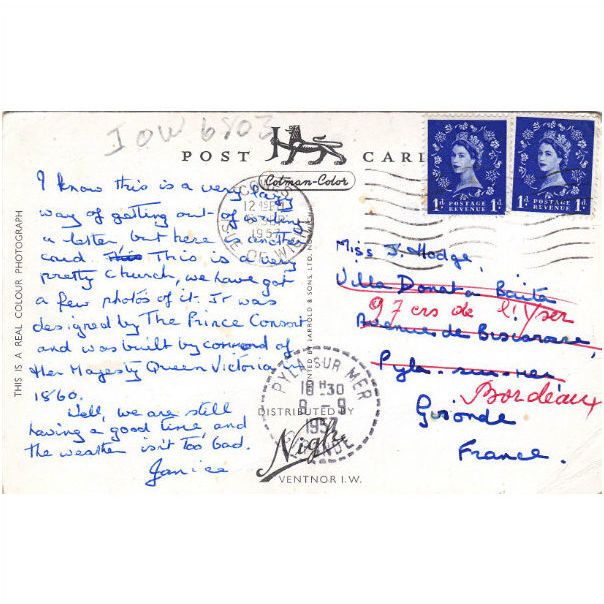 IOW 6803
POST CARD
Cotman-Color
I know this is a very lazy
way of getting out of writing
a letter, but here is another
card. This is a very
pretty church, we have got
a few photos of it. It was
designed by The Prince Consort
and was built by command of
Her Majesty Queen Victoria in
1860.
Well, we are still
having a good time and
the weather isn't too bad.
Janice
THIS IS A REAL COLOUR PHOTOGRAPH
JARROLD & SONS, LTD.
COWES
1957
ISLE OF WIGHT
POSTAGE REVENUE
1d. 1d.
POSTAGE REVENUE
1d. 1d.
Miss J. Hodge,
Villa Donat a Baita
97 crs de l'Yser
Avenue de Biscarosse,
Pyla-sur-mer
Bordeaux
Gironde
France.
PYLA SUR MER
18H30
9-9
1957
GIRONDE
DISTRIBUTED BY
Nigh
VENTNOR I.W.